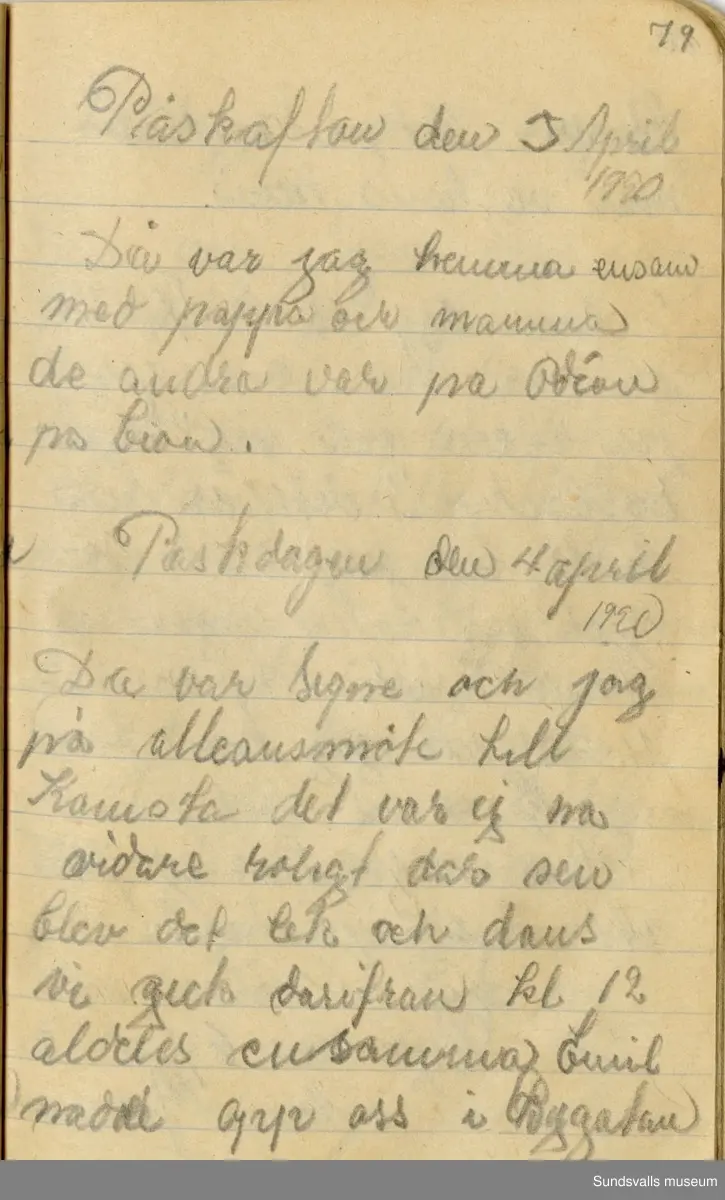 79
Påskafton den 3 April
1920
Då var jag hemma ensam
med pappa och mamma
de andra var på Öråen
på bion.
Påskdagen den 4 april
1920
Då var Signe och jag
på alleansmöte till
Kamsta det var ej na
vidare roligt där sen
blev det lek och dans
vi geck darifran kl 12
aldeles ensamma Emil
nadde opp oss i Bygatan
Sundsvalls museum